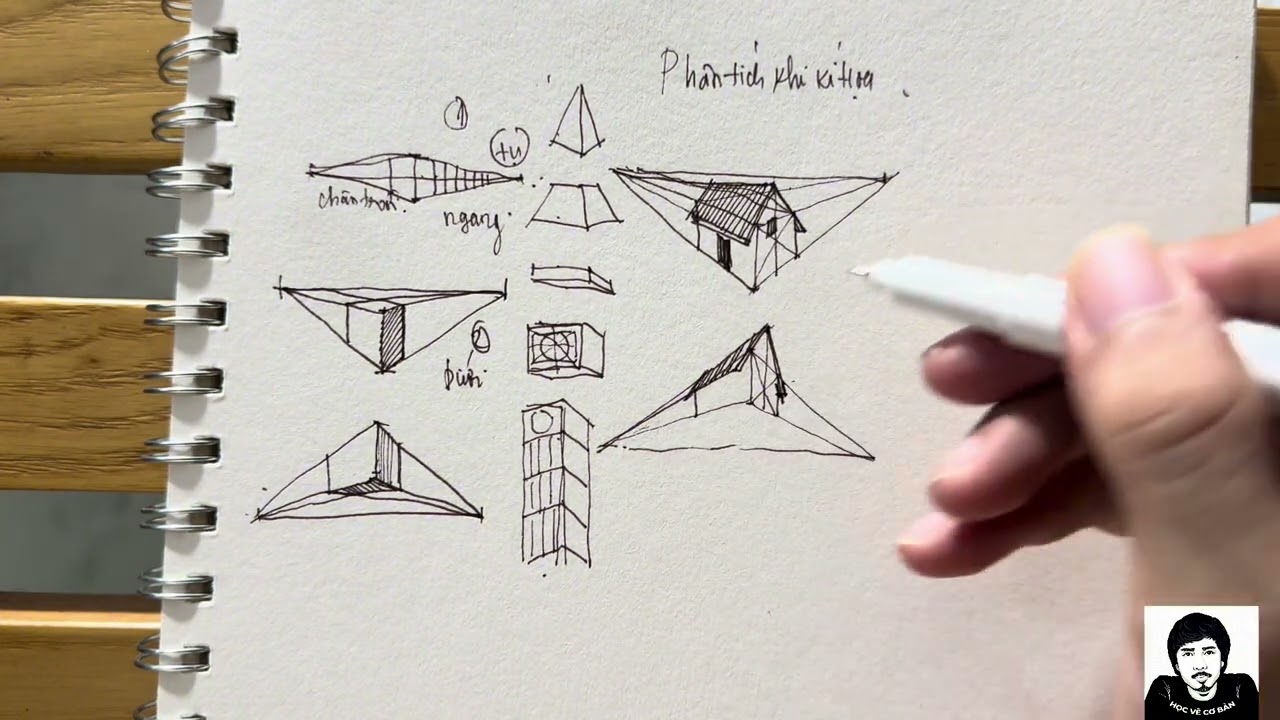 Phân tích khi kí họa.
①
tụ
chân trời.
ngang.
②
Dưới
HỌC VẼ CƠ BẢN